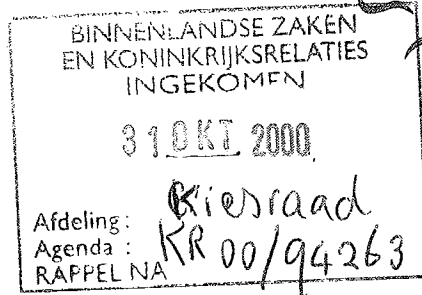 BINNENLANDSE ZAKEN
EN KONINKRIJKSRELATIES
INGEKOMEN
31 OKT. 2000
Afdeling: Kiesraad
Agenda : KR 00/94263
RAPPEL NA